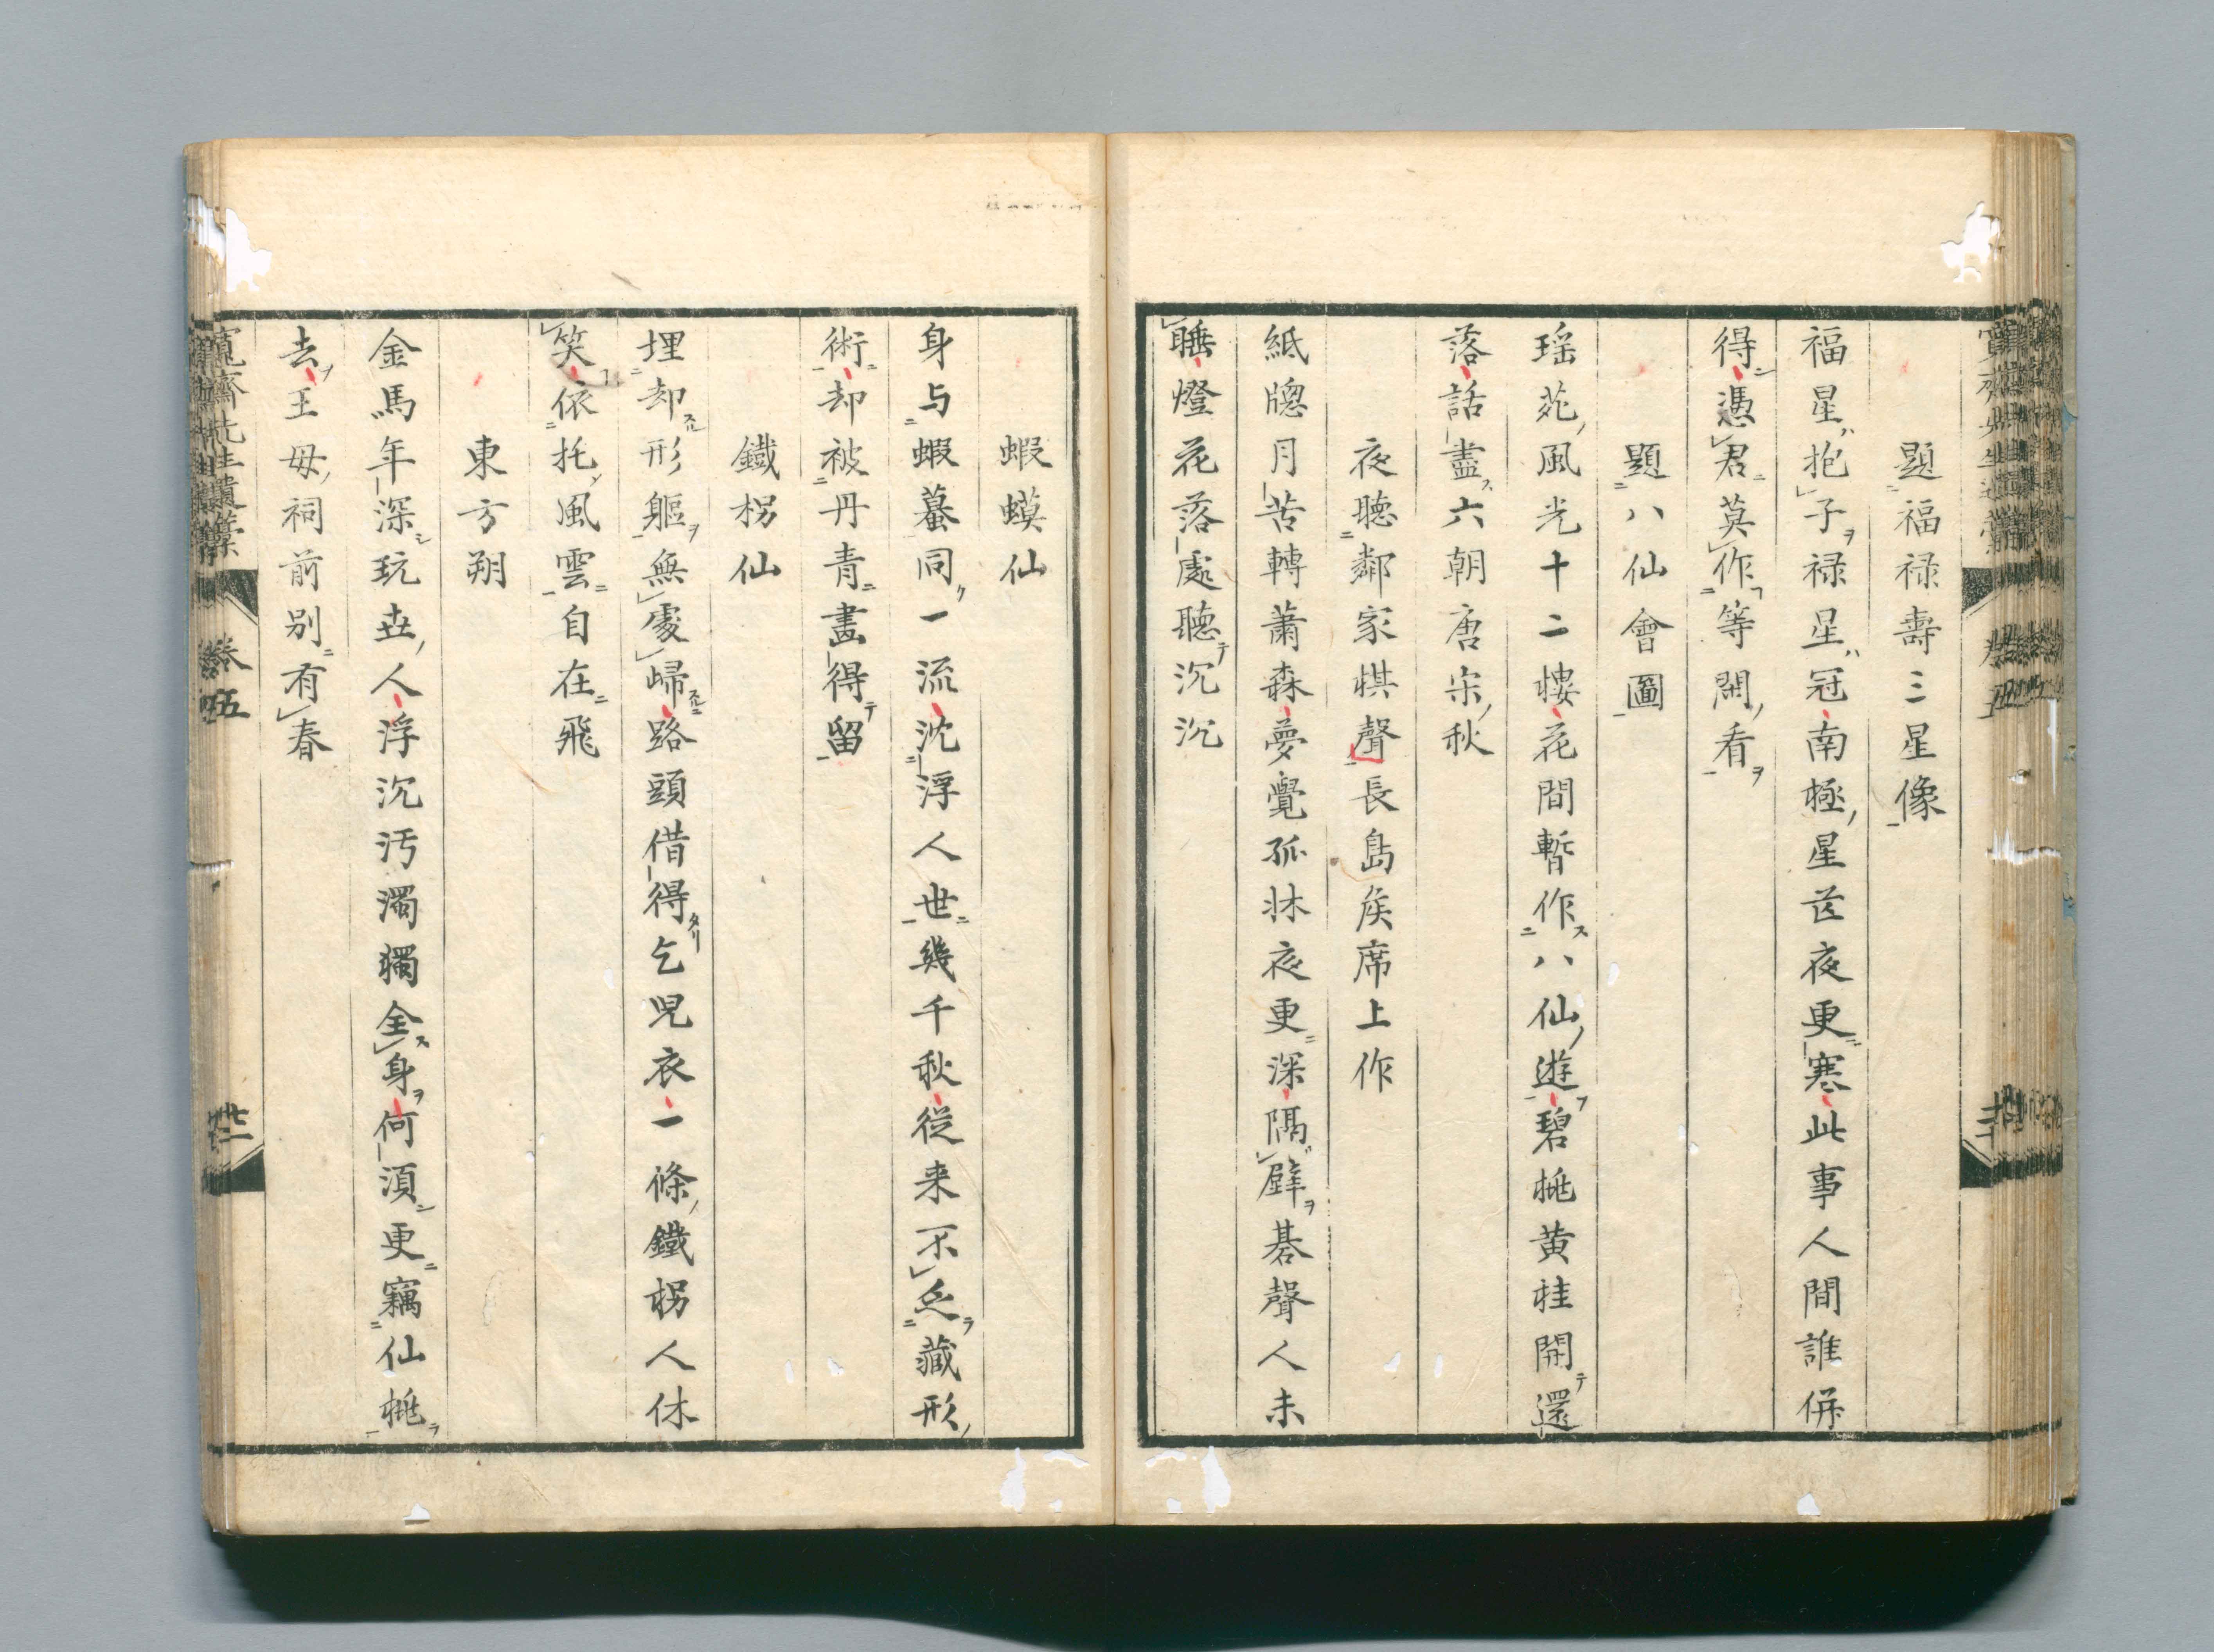 題福禄壽三星像
福星抱子禄星冠南極星芒夜更寒此事人間誰併
得憑君莫作等閑看
題八仙會圖
瑶苑風光十二樓花間暫作八仙遊碧桃黄桂開還
落話盡六朝唐宋秋
夜聴鄰家棋聲長島侯席上作
紙牕月苦轉蕭森夢覺孤牀夜更深隔壁碁聲人未
睡燈花落處聴沉沉
蝦蟆仙
身与蝦蟇同一流沈浮人世幾千秋從来不乏藏形
術却被丹青畫得留
鐵枴仙
埋却形軀無處歸路頭借得乞児衣一條鐵枴人休
笑依托風雲自在飛
東方朔
金馬年深玩世人浮沉汚濁獨全身何須更竊仙桃
去王母祠前別有春
寛齋先生遺藁 卷五